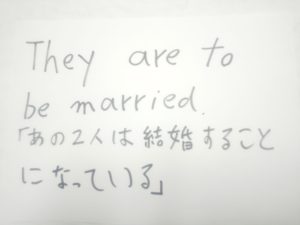 They are to
be married.
「あの2人は結婚すること
になっている」